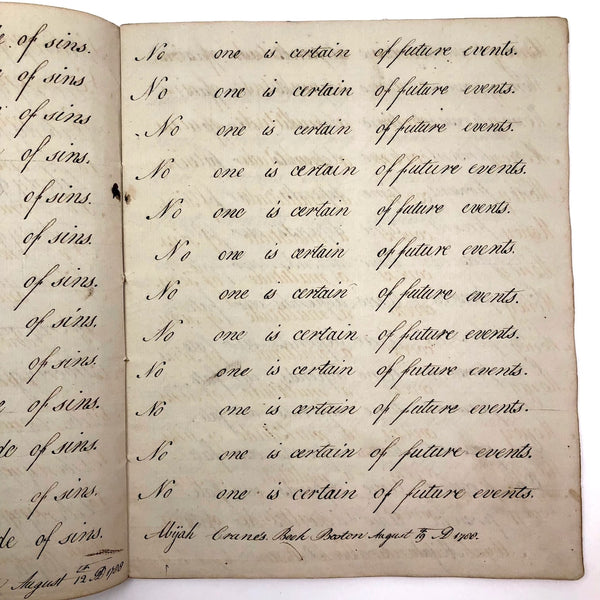 of sins.
of sins
of sins
of sins.
of sins.
of sins.
of sins.
of sins.
of sins.
of sins.
of sins.
of sins.
of sins.
August 12th AD 1788
No one is certain of future events.
No one is certain of future events.
No one is certain of future events.
No one is certain of future events.
No one is certain of future events.
No one is certain of future events.
No one is certain of future events.
No one is certain of future events.
No one is certain of future events.
No one is certain of future events.
No one is certain of future events.
No one is certain of future events.
Abijah Crane's Book Boston August 19th AD 1788.